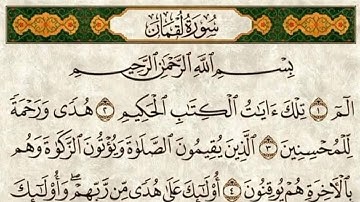 سُورَةُ لُقْمَانَ
بِسْمِ ٱللَّهِ ٱلرَّحْمَٰنِ ٱلرَّحِيمِ
الٓمٓ ١ تِلْكَ ءَايَٰتُ ٱلْكِتَٰبِ ٱلْحَكِيمِ ٢ هُدًى وَرَحْمَةً
لِّلْمُحْسِنِينَ ٣ ٱلَّذِينَ يُقِيمُونَ ٱلصَّلَوٰةَ وَيُؤْتُونَ ٱلزَّكَوٰةَ وَهُم
بِٱلْءَاخِرَةِ هُمْ يُوقِنُونَ ٤ أُو۟لَٰٓئِكَ عَلَىٰ هُدًى مِّن رَّبِّهِمْ ۖ وَأُو۟لَٰٓئِكَ